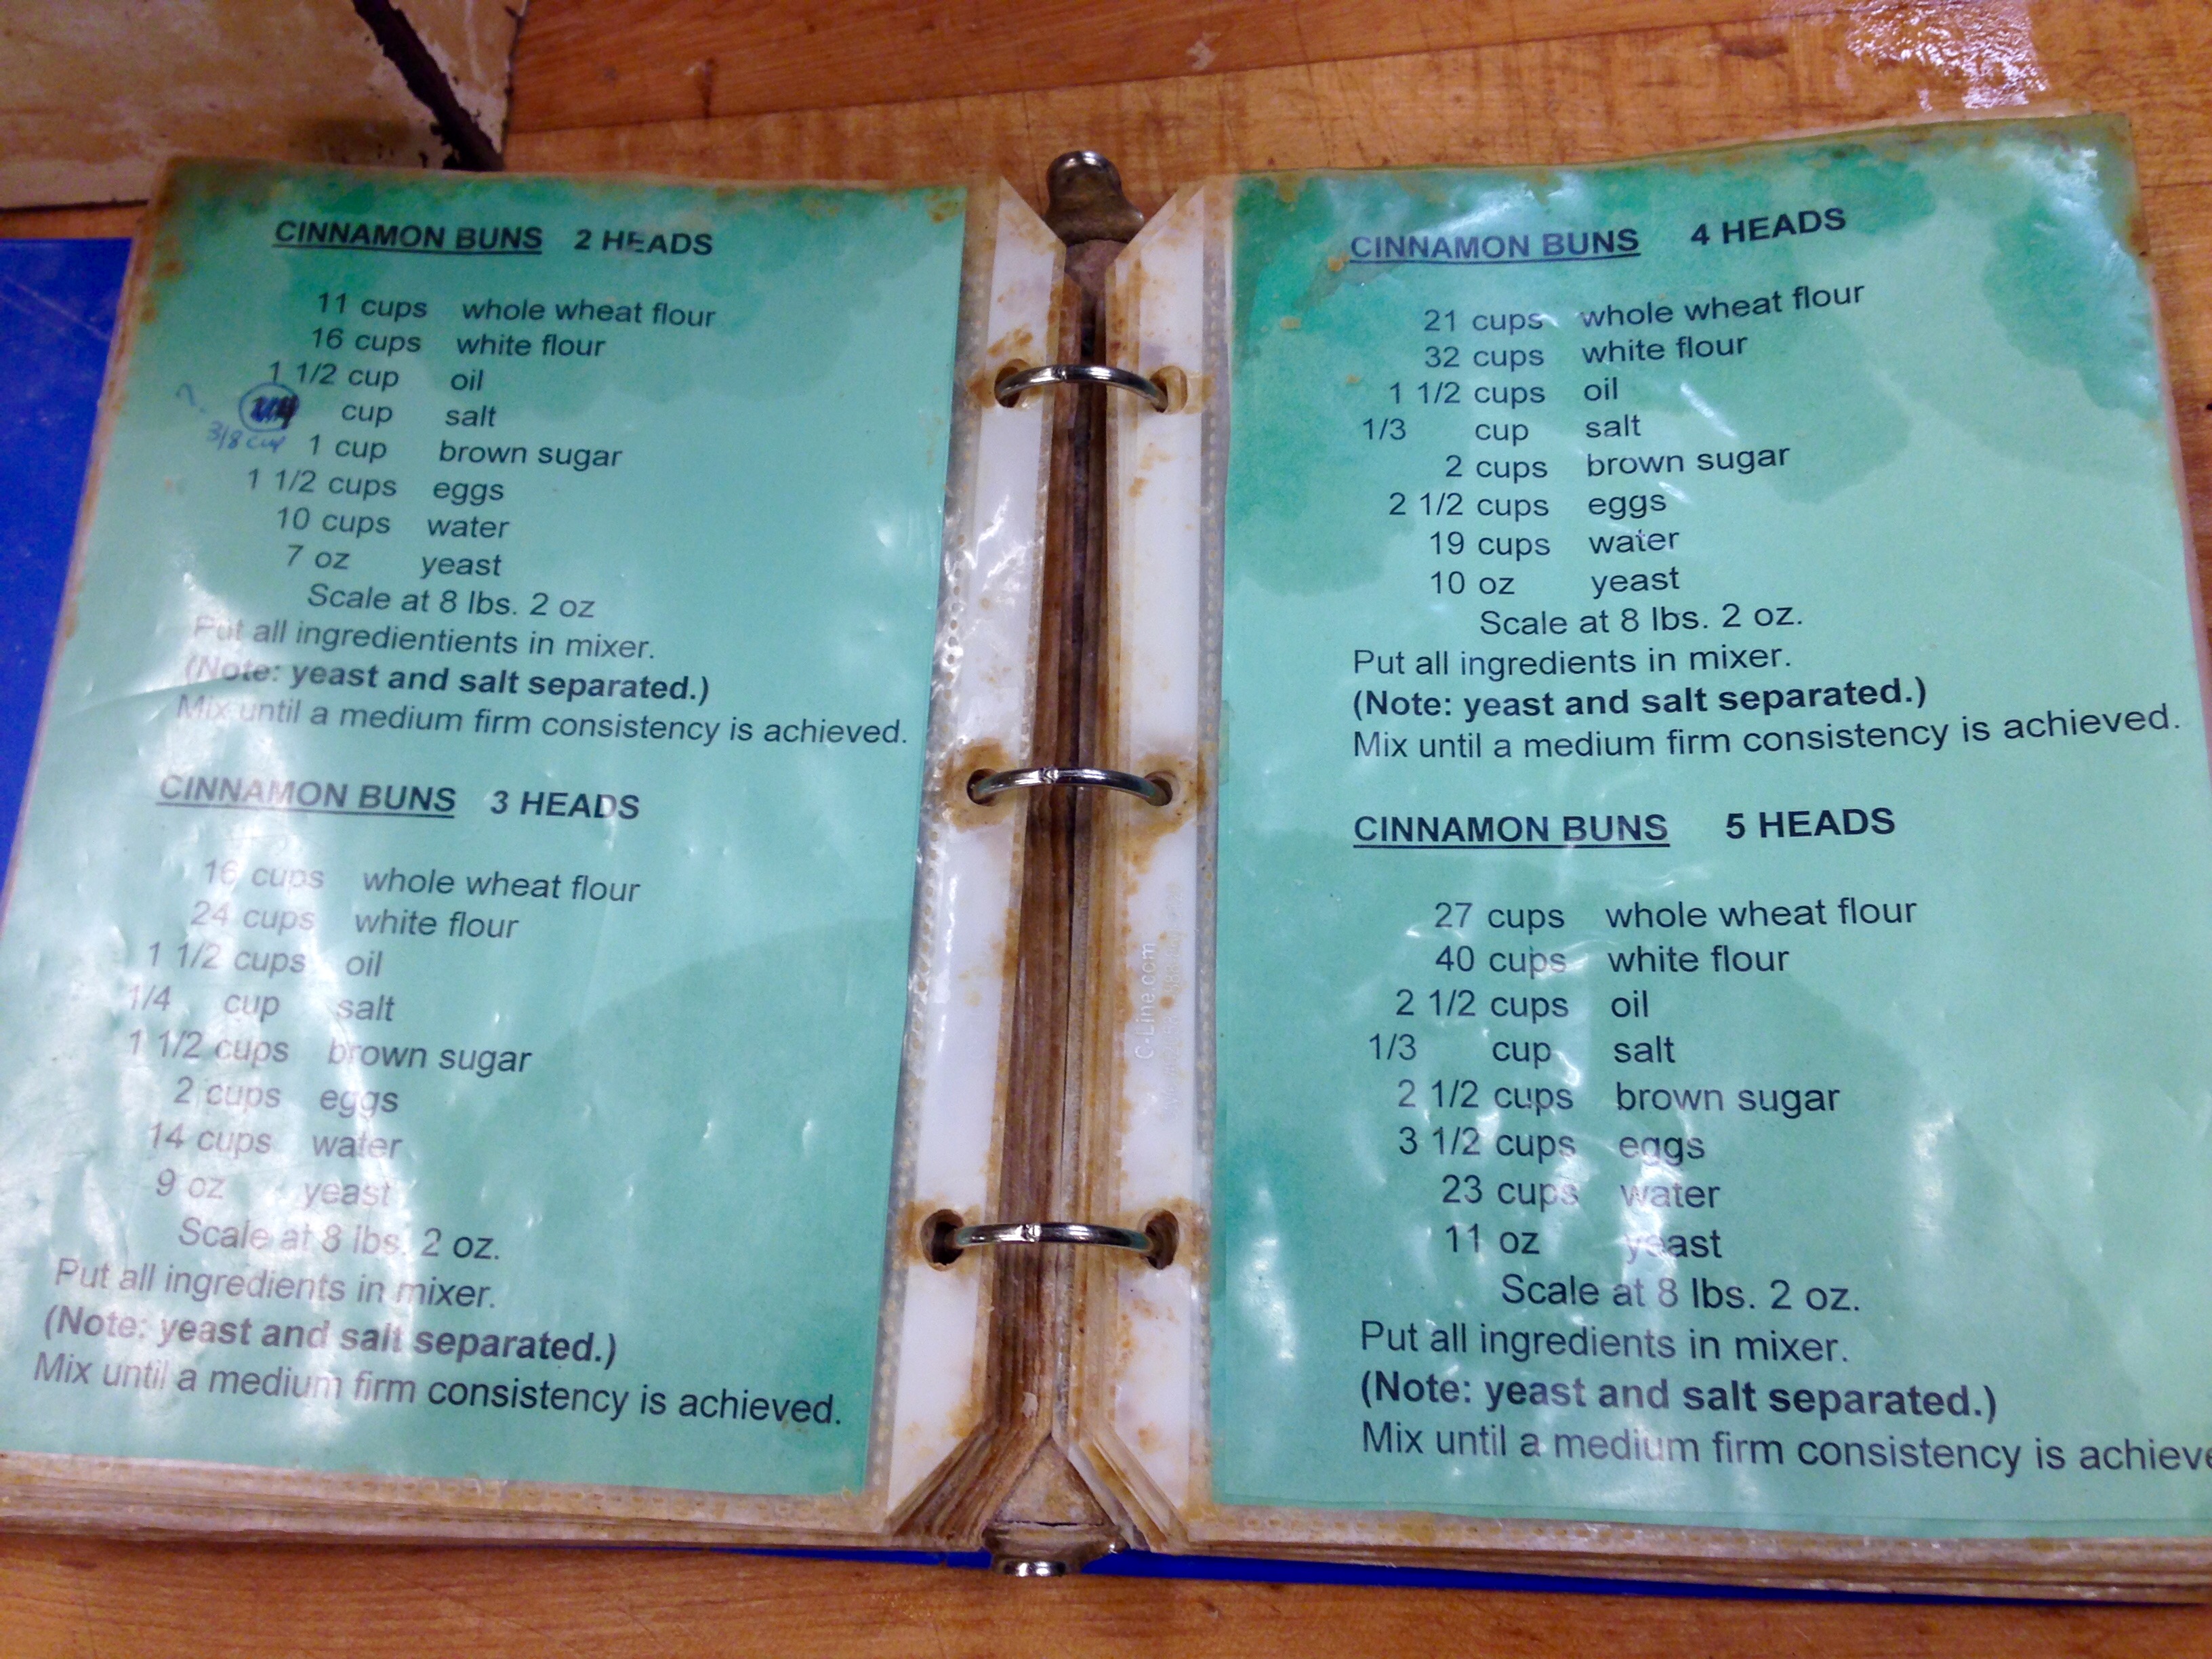 CINNAMON BUNS 2 HEADS
11 cups whole wheat flour
16 cups white flour
1 1/2 cup oil
?
cup salt
3/8 cup
1 cup brown sugar
1 1/2 cups eggs
10 cups water
7 oz yeast
Scale at 8 lbs. 2 oz
Put all ingredientients in mixer.
(Note: yeast and salt separated.)
Mix until a medium firm consistency is achieved.
CINNAMON BUNS 3 HEADS
16 cups whole wheat flour
24 cups white flour
1 1/2 cups oil
1/4 cup salt
1 1/2 cups brown sugar
2 cups eggs
14 cups water
9 oz yeast
Scale at 8 lbs. 2 oz.
Put all ingredients in mixer.
(Note: yeast and salt separated.)
Mix until a medium firm consistency is achieved.
C-Line.com
CINNAMON BUNS 4 HEADS
21 cups whole wheat flour
32 cups white flour
1 1/2 cups oil
1/3 cup salt
2 cups brown sugar
2 1/2 cups eggs
19 cups water
10 oz yeast
Scale at 8 lbs. 2 oz.
Put all ingredients in mixer.
(Note: yeast and salt separated.)
Mix until a medium firm consistency is achieved.
CINNAMON BUNS 5 HEADS
27 cups whole wheat flour
40 cups white flour
2 1/2 cups oil
1/3 cup salt
2 1/2 cups brown sugar
3 1/2 cups eggs
23 cups water
11 oz yeast
Scale at 8 lbs. 2 oz.
Put all ingredients in mixer.
(Note: yeast and salt separated.)
Mix until a medium firm consistency is achieve